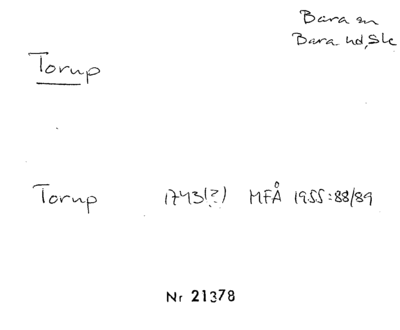 Bara sn
Bara hd, Sk
Torup
Torup 1743(?) MFÅ 1955:88/89
Nr 21378